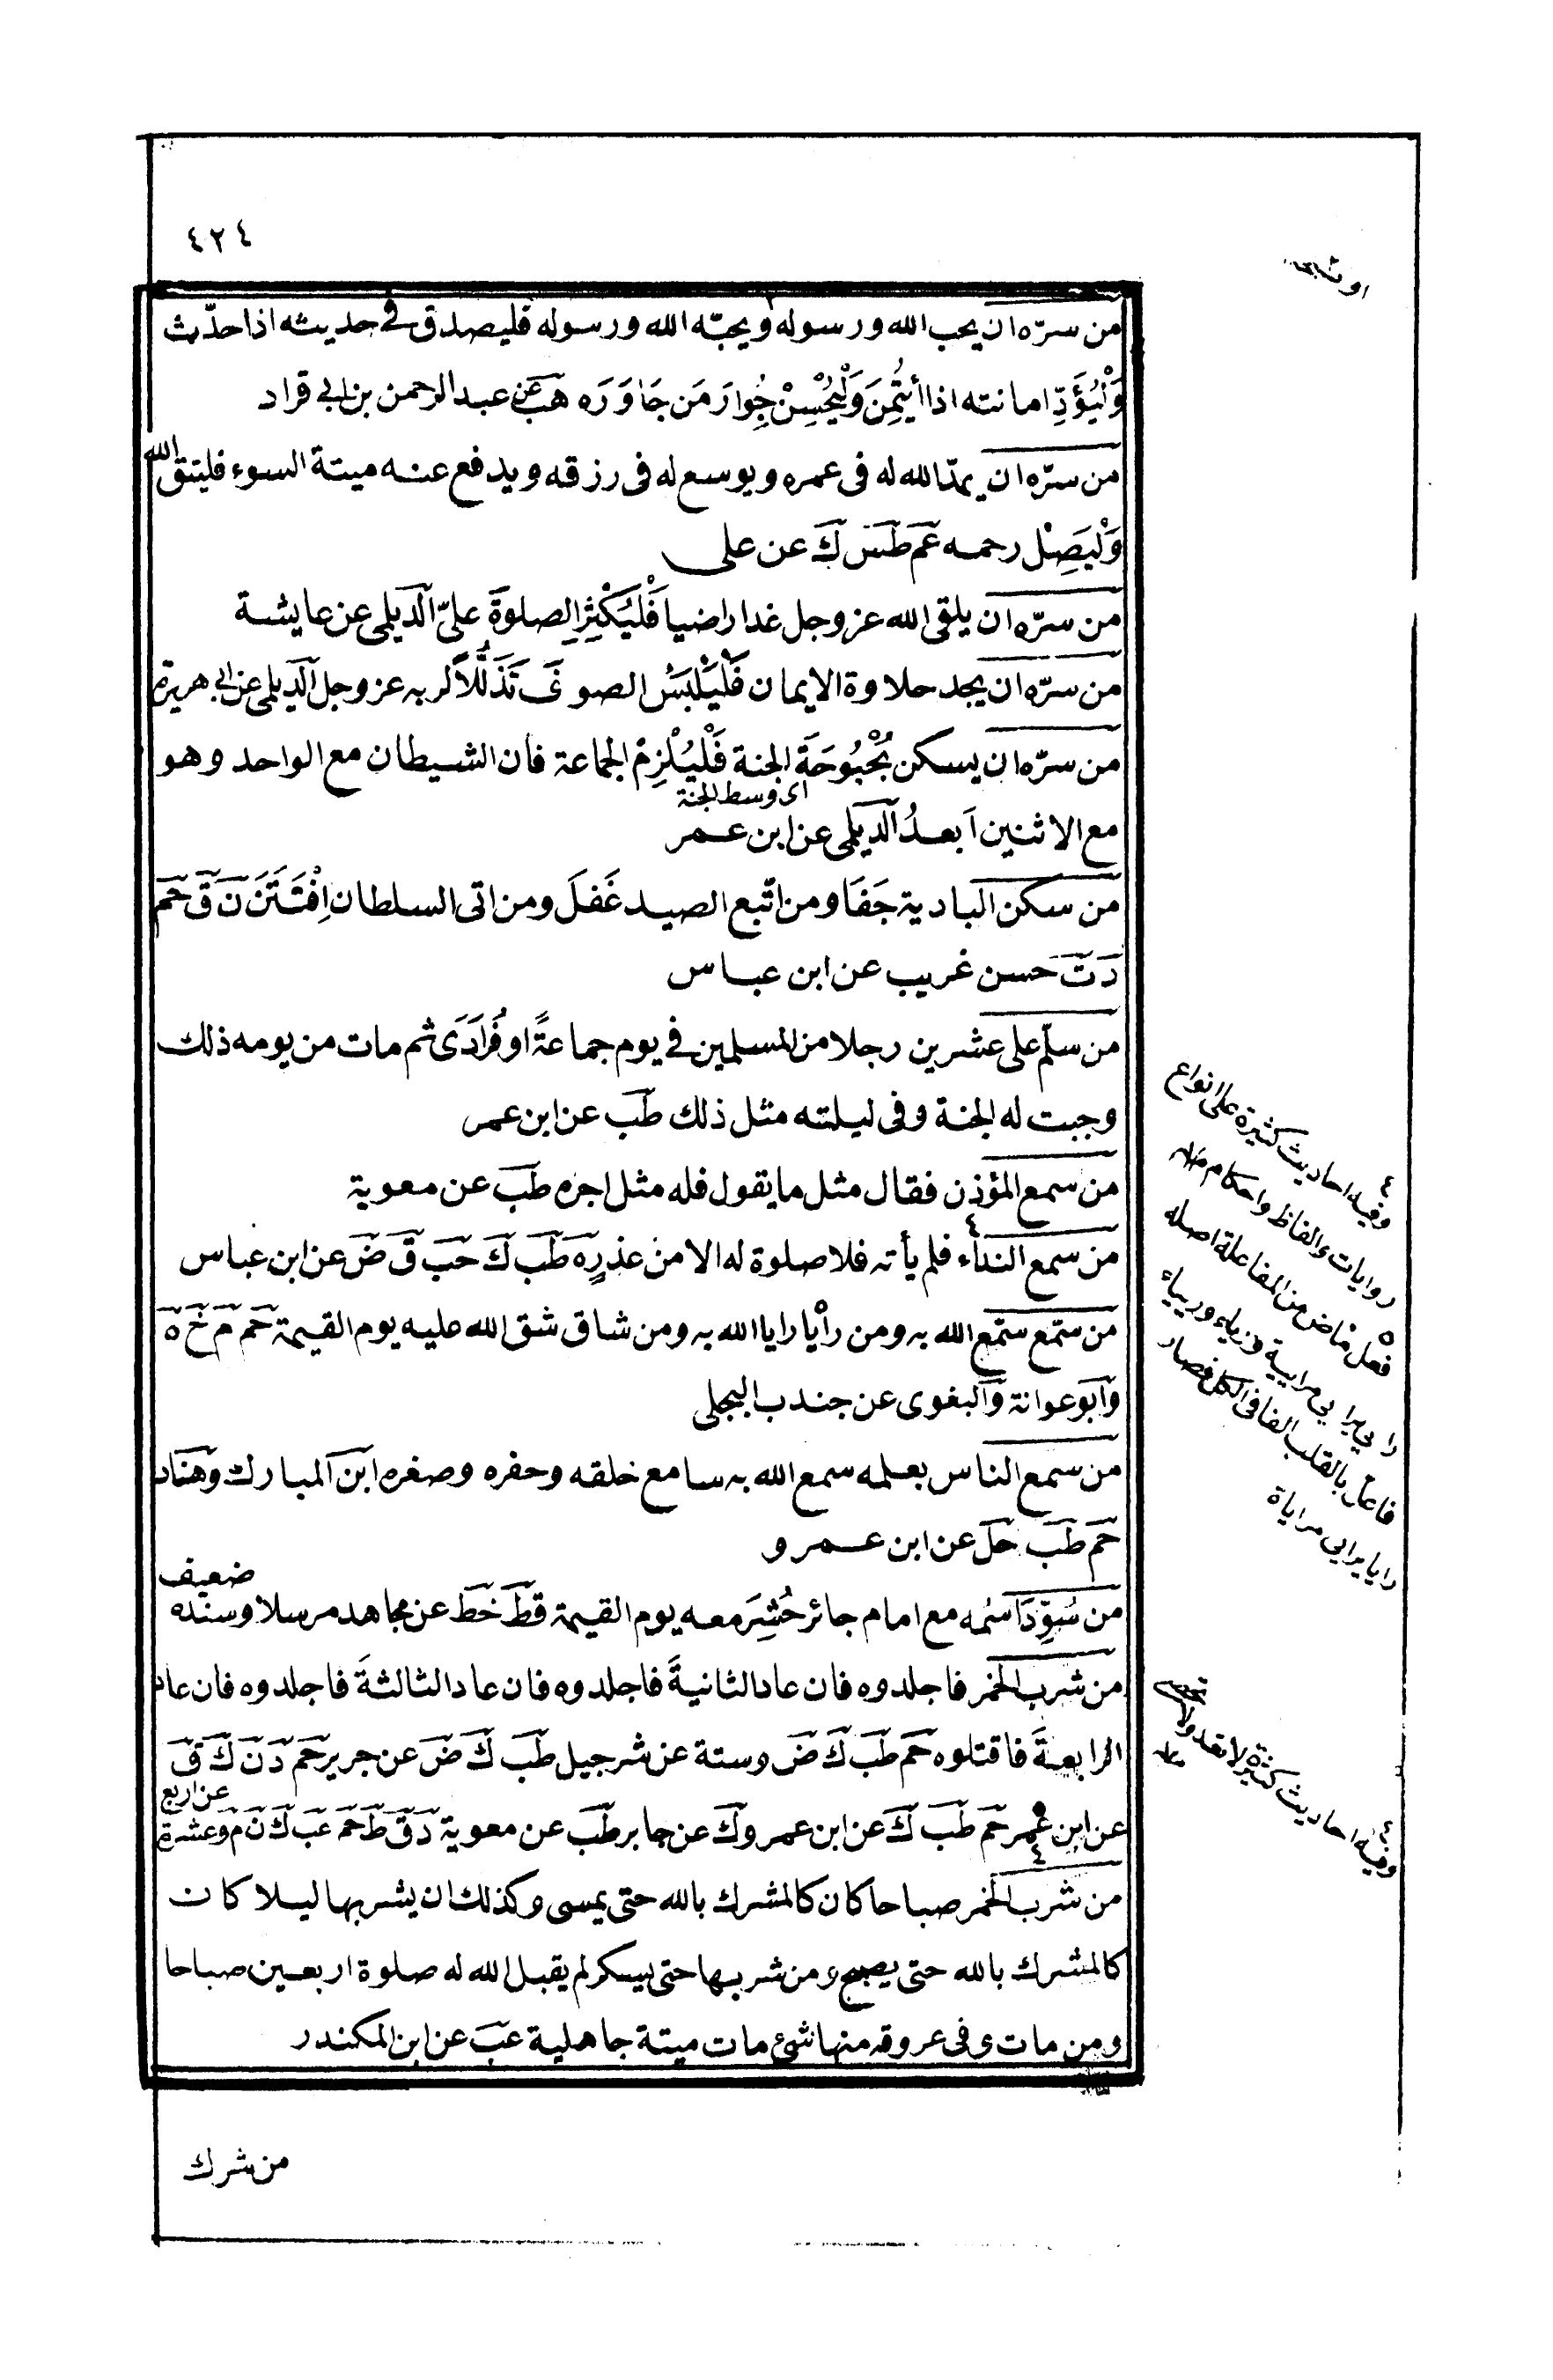 ٤٢٤
او
من سرّه ان يحب الله ورسوله ويحبّه الله ورسوله فليصدق فى حديثه اذا حدّث
وَلْيُؤَدِّ امانته اذا أيتُمِنَ وَلْيُحْسِنْ جُِوارَ مَن جَاوَرَه هَبَ عن عبد الرحمن بن ابى قراد
من سرّه ان يمدّ الله له فى عمره ويوسع له فى رزقه ويدفع عنه ميتة السوء فليتق الله
وَلْيَصِلْ رحمه عَم طَسَ كَ عن على
من سرّه ان يلقى الله عز وجل غدا راضيا فَلْيُكْثِرِ الصلوةَ علىّ الَديلمى عن عايشة
من سرّه ان يجد حلاوة الايمان فَلْيَلْبَسُ الصوفَ تَذَلُّلاً لربه عز وجل الَديلمى عن ابى هريرة
من سرّه ان يسكن بُحْبُوحَةَ الجنة فَلْيُلْزِمْ الجماعة فان الشيطان مع الواحد وهو
اى وسط الجنة
مع الاثنين اَبعدُ الَديلمى عن ابن عمر
من سكن البادية جَفَا ومن اتّبع الصيد غَفلَ ومن اتى السلطان اِفْتَتَنَ نَ قَ حَم
دَ تَ حسن غريب عن ابن عباس
من سلّم على عشرين رجلا من المسلمين فى يوم جماعةً او فُرَادَى ثم مات من يومه ذلك
وجبت له الجنة وفى ليلته مثل ذلك طَب عن ابن عمر
من سمع المؤذن فقال مثل ما يقول فله مثل اجره طَب عن معوية
من سمع النداء ٤ فلم يأته فلا صلوة له الا من عذر هَ طَب كَ حَب قَ ضَ عن ابن عباس
من سمّع سمّع الله به ومن رأيا رايا الله به ومن شاق شق الله عليه يوم القيمة حَم مَ خَ هَ
وَابَو عوانة وَالبغوى عن جندب البجلى
من سمع الناس بعلمه سمع الله به سامع خلقه وحقره وصغره ابن المبارك وَهناد
حَم طَب حَل عن ابن عمرو
من سُوِّدَ اسمُه مع امام جائر حُشِرَ معه يوم القيمة قَط خَط عن مجاهد مرسلا وسنده ضعيف
من شرب الخمر فاجلدوه فان عاد الثانيةَ فاجلدوه فان عاد الثالثةَ فاجلدوه فان عاد
الرابعةَ فاقتلوه حَم طَب كَ ضَ وستة عن شرجيل طَب كَ ضَ عن جرير حَم دَ نَ كَ قَ
عن ابن عمر حَم طَب كَ عن ابن عمرو كَ عن جابر طَب عن معوية دَ قَ طَ حَم عَب كَ نَ مَ وعشرة عن اربع
من شرب الخمر ٤ صباحا كان كالمشرك بالله حتى يمسى وكذلك ان يشربها ليلا كان
كالمشرك بالله حتى يصبح ومن شربها حتى يسكر لم يقبل الله له صلوة اربعين صباحا
ومن مات وفى عروقه منها شئ مات ميتة جاهلية عَب عن ابن المكندر
من شرك
٤
وفيه احاديث كثيرة على انواع
روايات والفاظ واحكام
٥
فعل ماض من المفاعلة اصله
رايى يرايى مراييةً
فاعل بالقلب الفا فى الكل فصار
رايا يرايى مراياة
٤
وفيه احاديث كثيرة لا تعد ولا تحصى